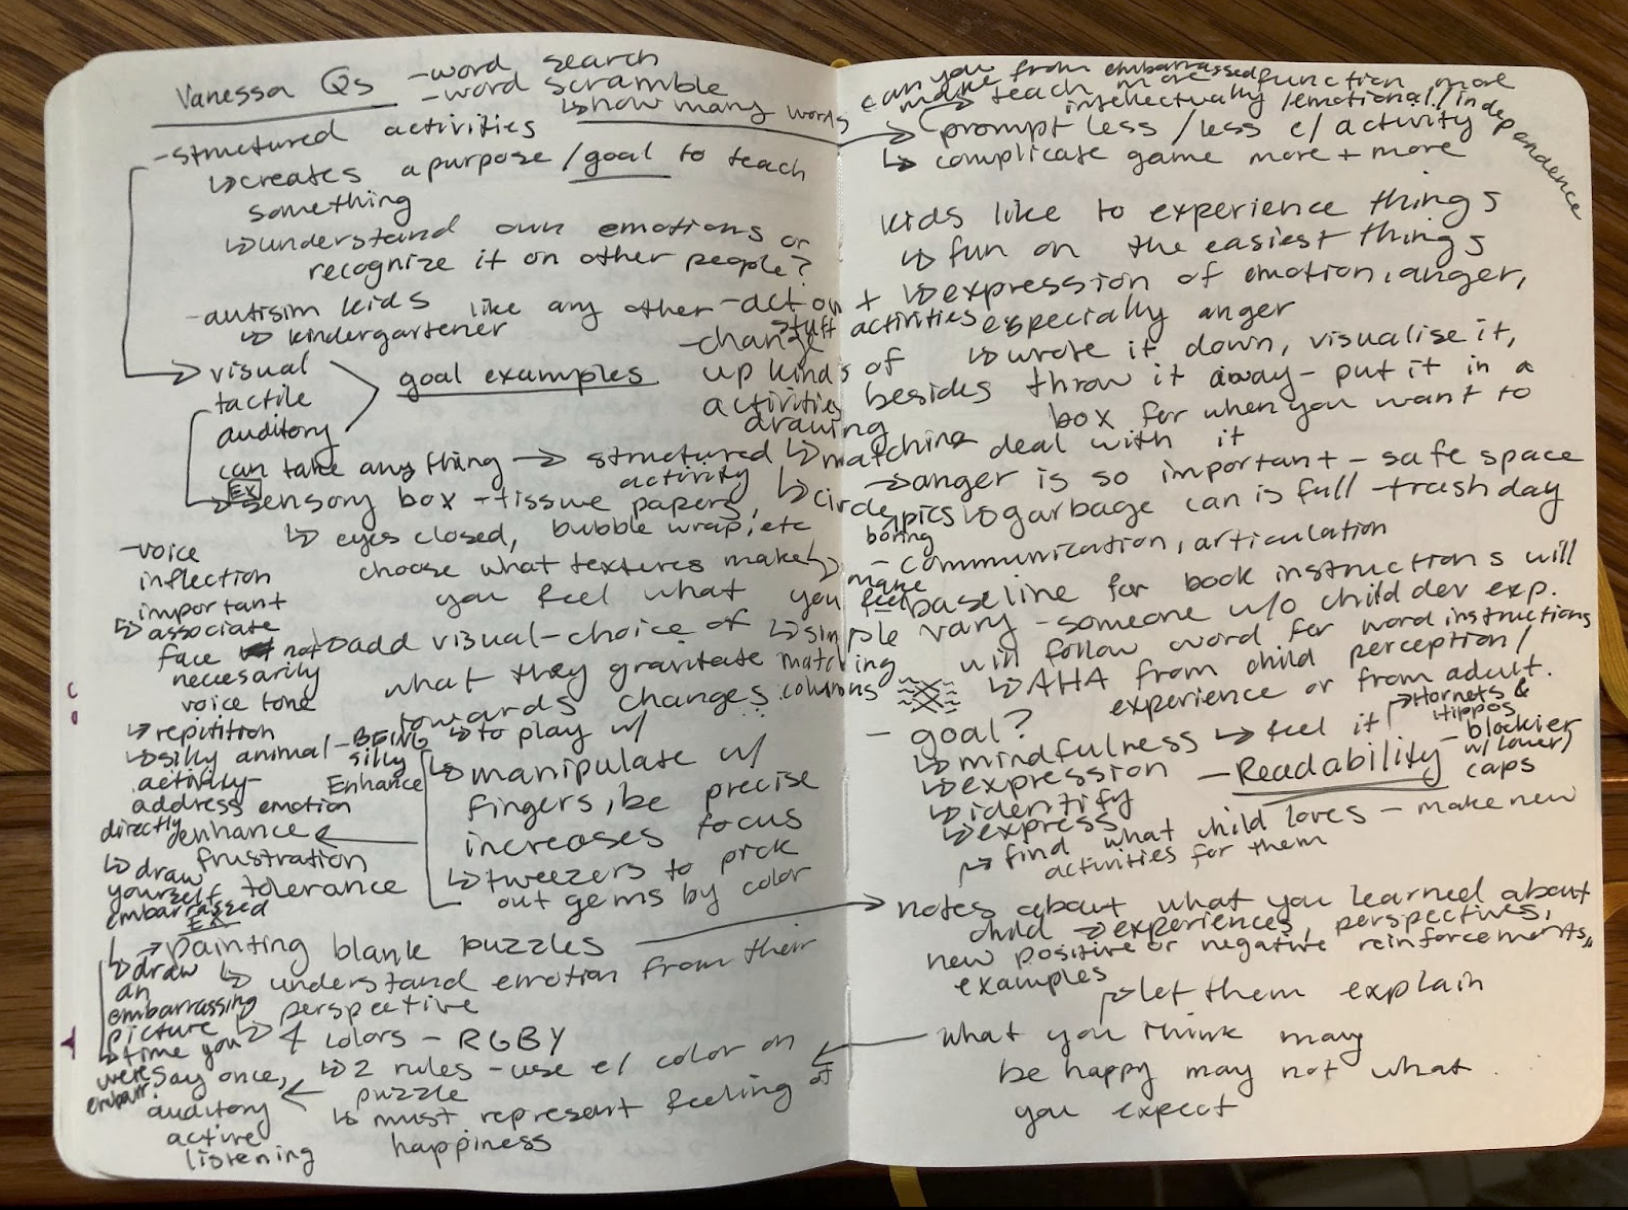 Vanessa Qs
-word search
-word scramble
↳how many words
-structured activities
↳creates a purpose/goal to teach
something
↳understand own emotions or
recognize it on other people?
-autisim kids like any other
↳ kindergartener
→ visual
tactile
auditory
goal examples
-change
up kinds of
activities
drawing
can take anything → structured
activity
↳matching
↳circle pics
boring
EX
sensory box -tissue papers,
↳ eyes closed, bubble wrap, etc
choose what textures make
you feel what you feel
↳ add visual-choice of
what they gravitate
towards changes
↳ simple
matching
columns
-voice
inflection
important
↳associate
face not
necesarily
voice tone
↳repitition
↳silly animal
activity-
address emotion
directly
-BEING
silly
Enhance
↳to play w/
↳manipulate w/
fingers, be precise
increases focus
↳tweezers to pick
out gems by color
enhance
frustration
tolerance
↳draw
yourself
embarrassed
EX
painting blank puzzles
↳ understand emotion from their
perspective
↳draw
an
embarrassing
picture
↳time you
were
↳ 4 colors - RGBY
↳ 2 rules - use e/ color on
puzzle
↳ must represent feeling of
happiness
say once,
auditory
active
listening
can you from embarrassed function more
make teach more intellectually/emotional/independence
→ prompt less/less e/activity
↳ complicate game more + more
kids like to experience things
↳ fun on the easiest things
+ ↳expression of emotion, anger,
especially anger
-act on
stuff
activities
↳wrote it down, visualise it,
besides throw it away - put it in a
box for when you want to
deal with it
→anger is so important - safe space
↳garbage can is full -trash day
- communication, articulation
baseline for book instructions will
vary - someone w/o child dev exp.
will follow word for word instructions
↳AHA from child perception/
experience or from adult.
- goal?
↳mindfulness ↳ feel it
↳expression
↳identify
↳express
-Readability
Hornets &
Hippos
- blockier
w/ lower
caps
find what child loves - make new
activities for them
→ notes about what you learned about
child → experiences, perspectives,
new positive or negative reinforcements,
examples
let them explain
what you think may
be happy may not what
you expect